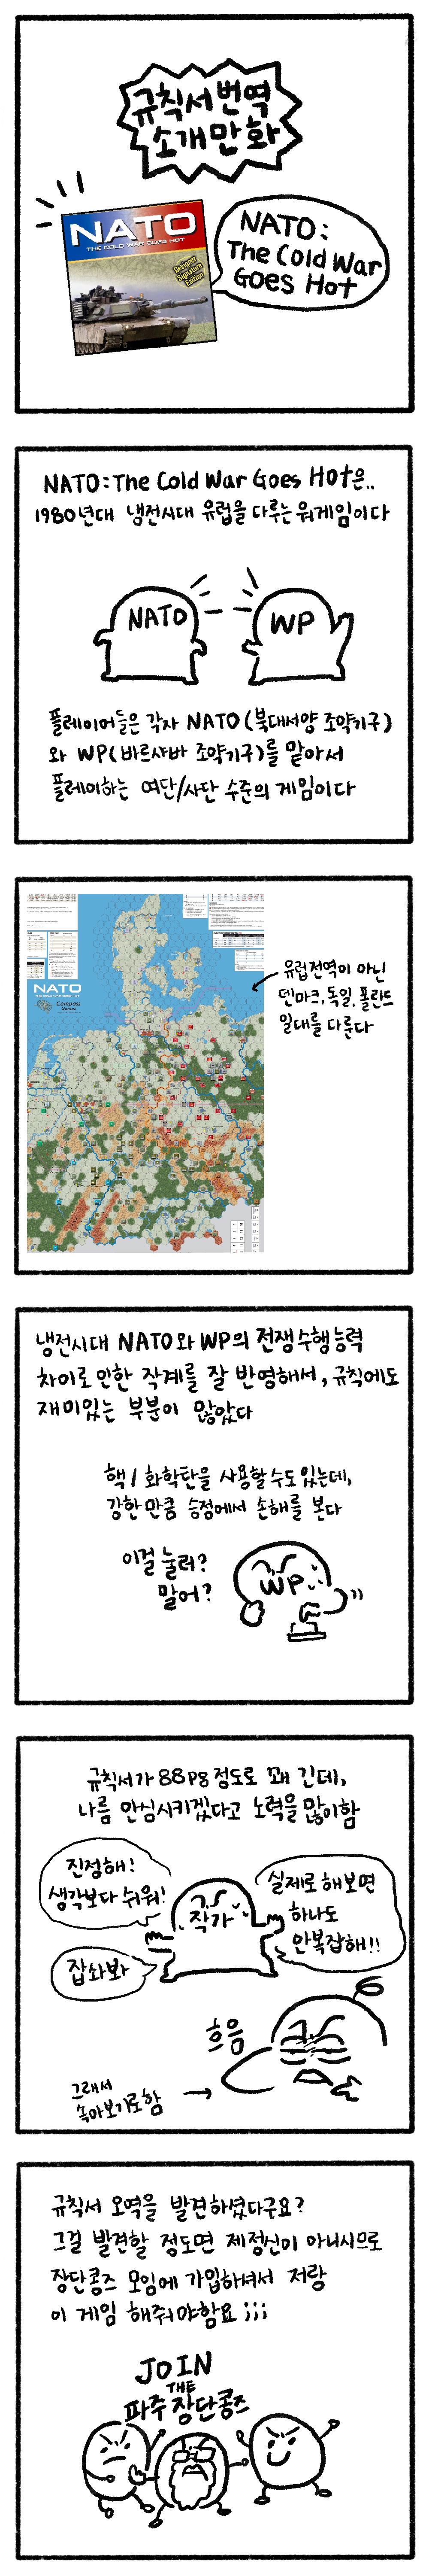 규칙서 번역
소개 만화
NATO
THE COLD WAR GOES HOT
Designer
Signature
Edition
NATO:
The Cold War
Goes Hot
NATO: The Cold War Goes Hot은..
1980년대 냉전시대 유럽을 다루는 워게임이다
NATO
WP
플레이어들은 각자 NATO(북대서양 조약기구)
와 WP(바르샤바 조약기구)를 맡아서
플레이하는 여단/사단 수준의 게임이다
유럽 전역이 아닌
덴마크, 독일, 폴란드
일대를 다룬다
NATO
THE COLD WAR GOES HOT
Compass
Games
냉전시대 NATO와 WP의 전쟁수행능력
차이로 인한 작계를 잘 반영해서, 규칙에도
재미있는 부분이 많았다
핵/화학탄을 사용할 수도 있는데,
강한 만큼 승점에서 손해를 본다
이걸 눌러?
말어?
WP
규칙서가 88pg 정도로 꽤 긴데,
나름 안심시키겠다고 노력을 많이함
진정해!
생각보다 쉬워!
작가
실제로 해보면
하나도
안복잡해!!
잡솨봐
흐음
그래서
속아보기로함
규칙서 오역을 발견하셨다구요?
그걸 발견할 정도면 제정신이 아니시므로
장단콩즈 모임에 가입하셔서 저랑
이 게임 해줘야함요 ;;;
JOIN
THE
파주 장단콩즈